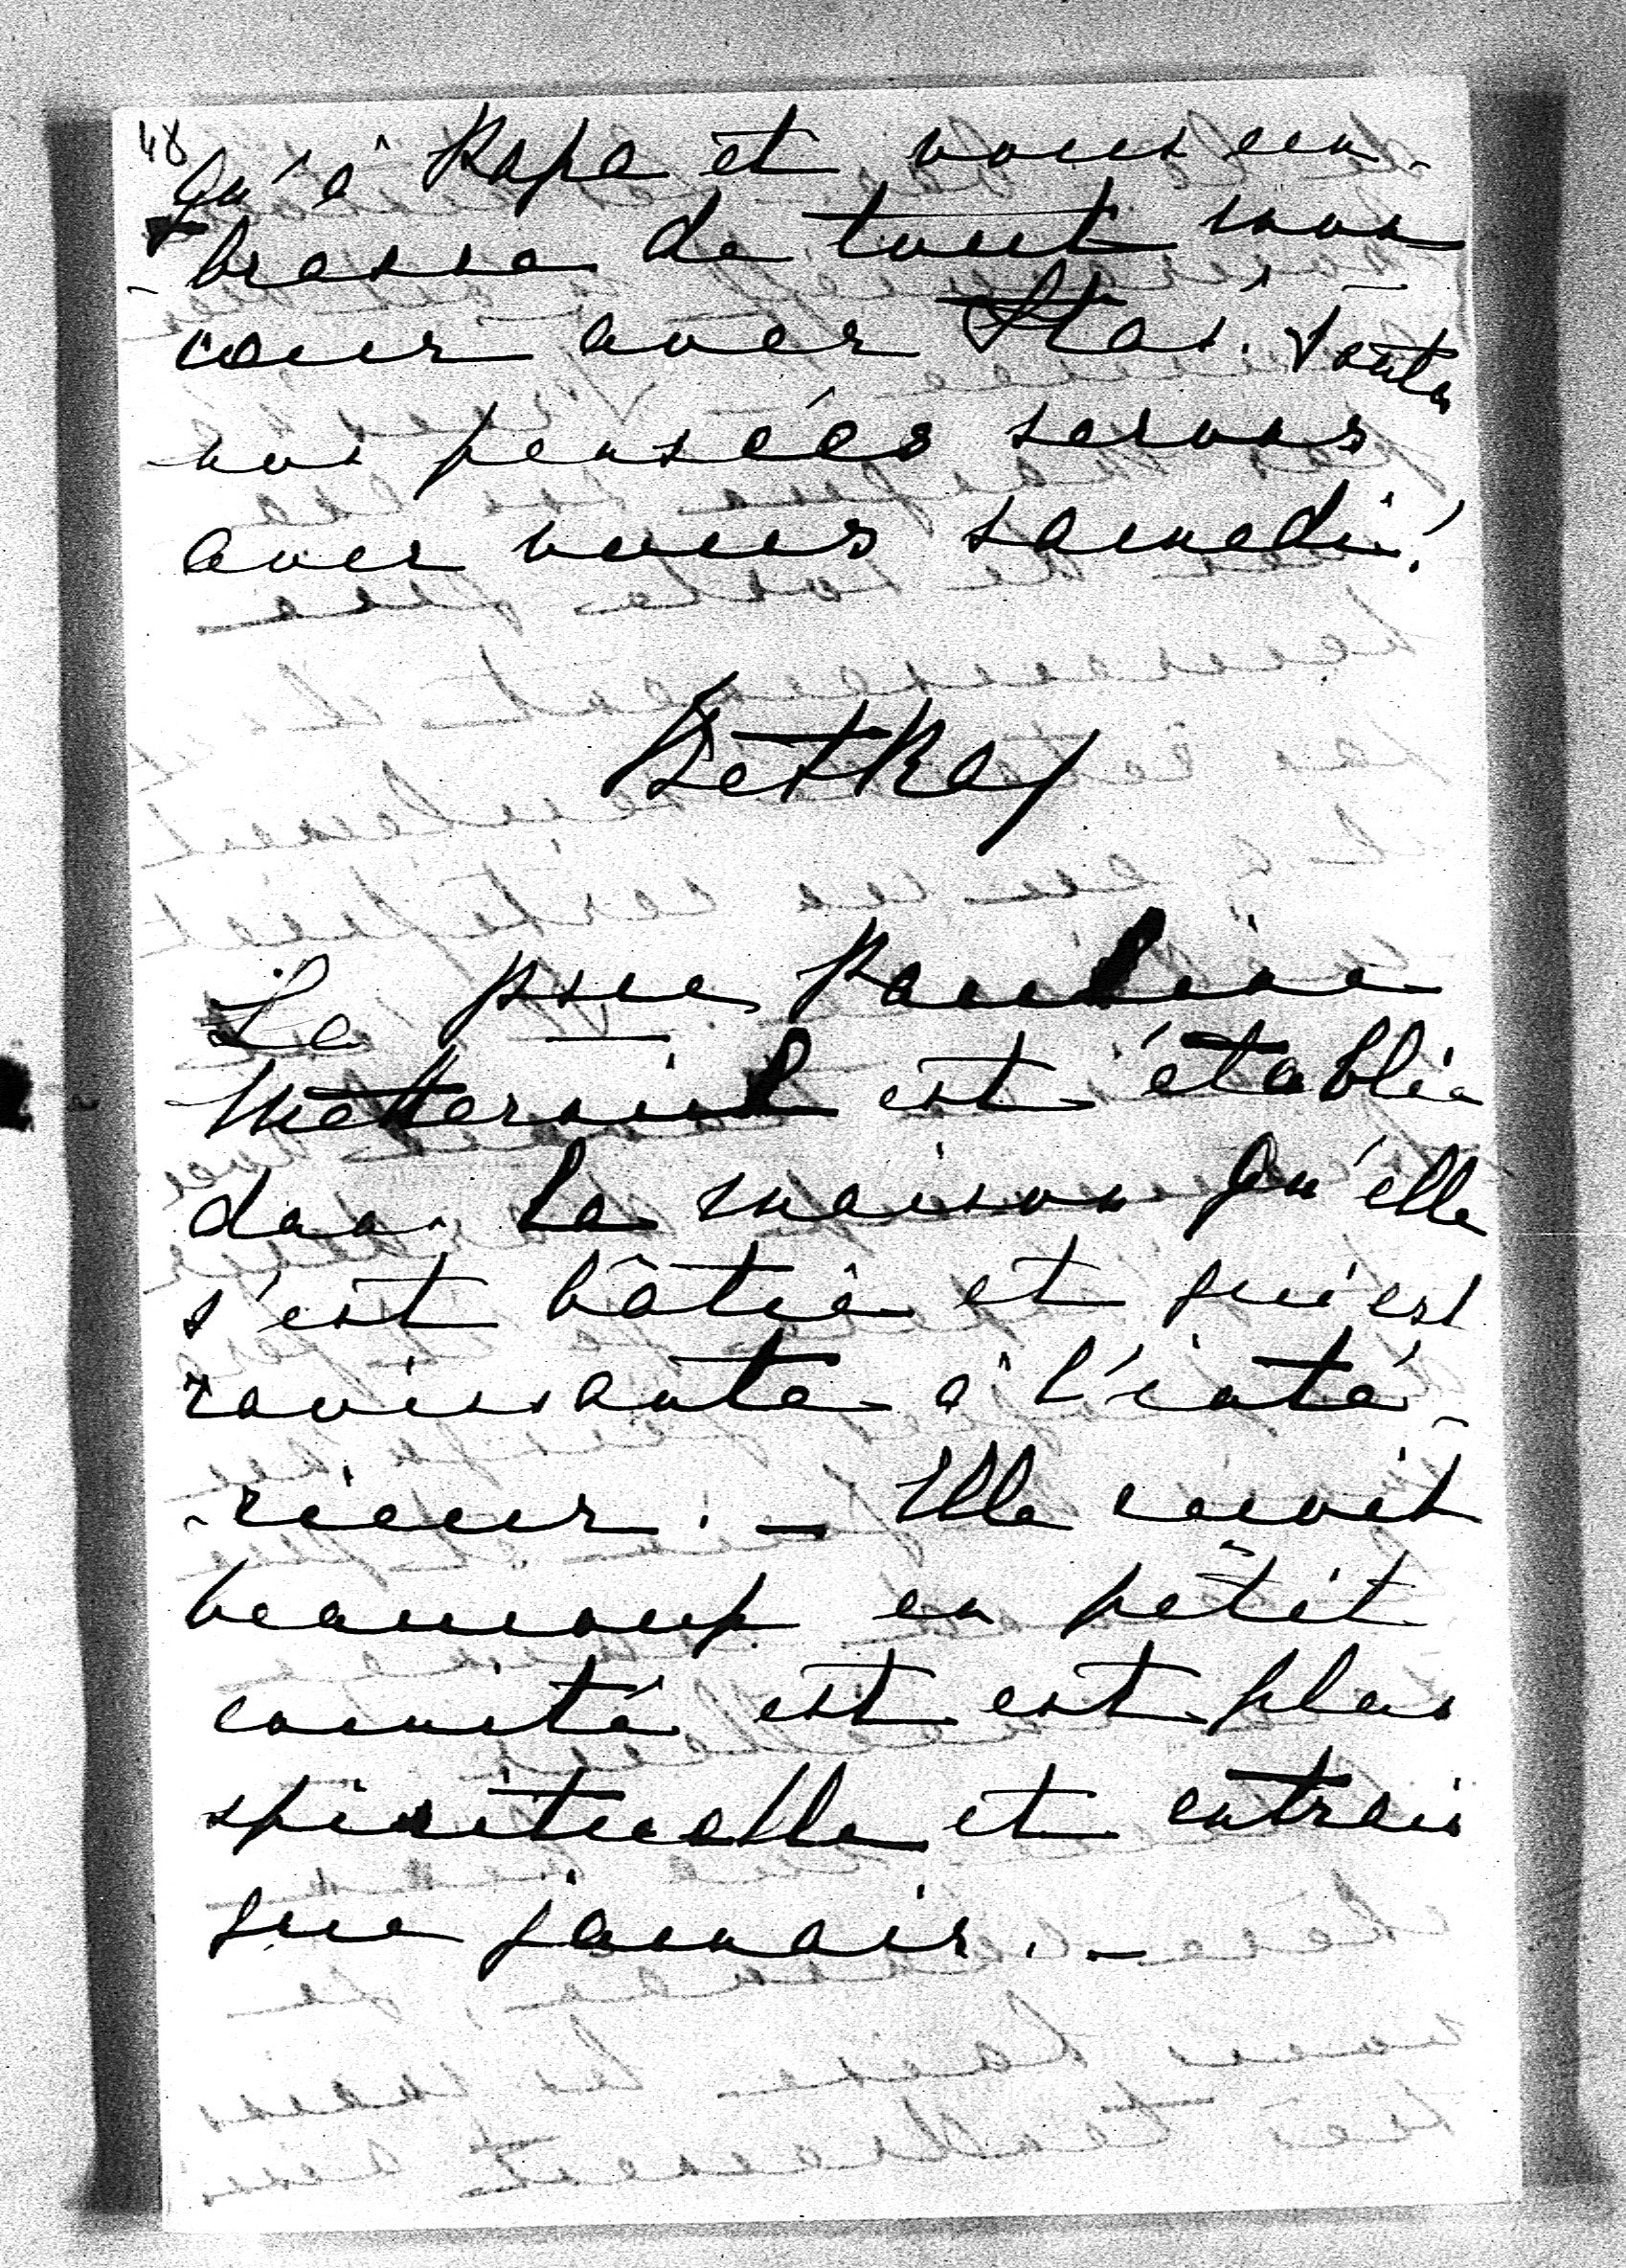 48
qu'à Papa et vous em-
-brasse de tout mon
cœur avec Stas. Toutes
nos pensées serons
avec vous samedi!
Betka
La psse Pauline
Metternich est établie
dans la maison qu'elle
s'est bâtie et qui est
ravissante à l'inté-
-rieur. — Elle reçoit
beaucoup en petit
comité est est plus
spirituelle et entrain
que jamais. —